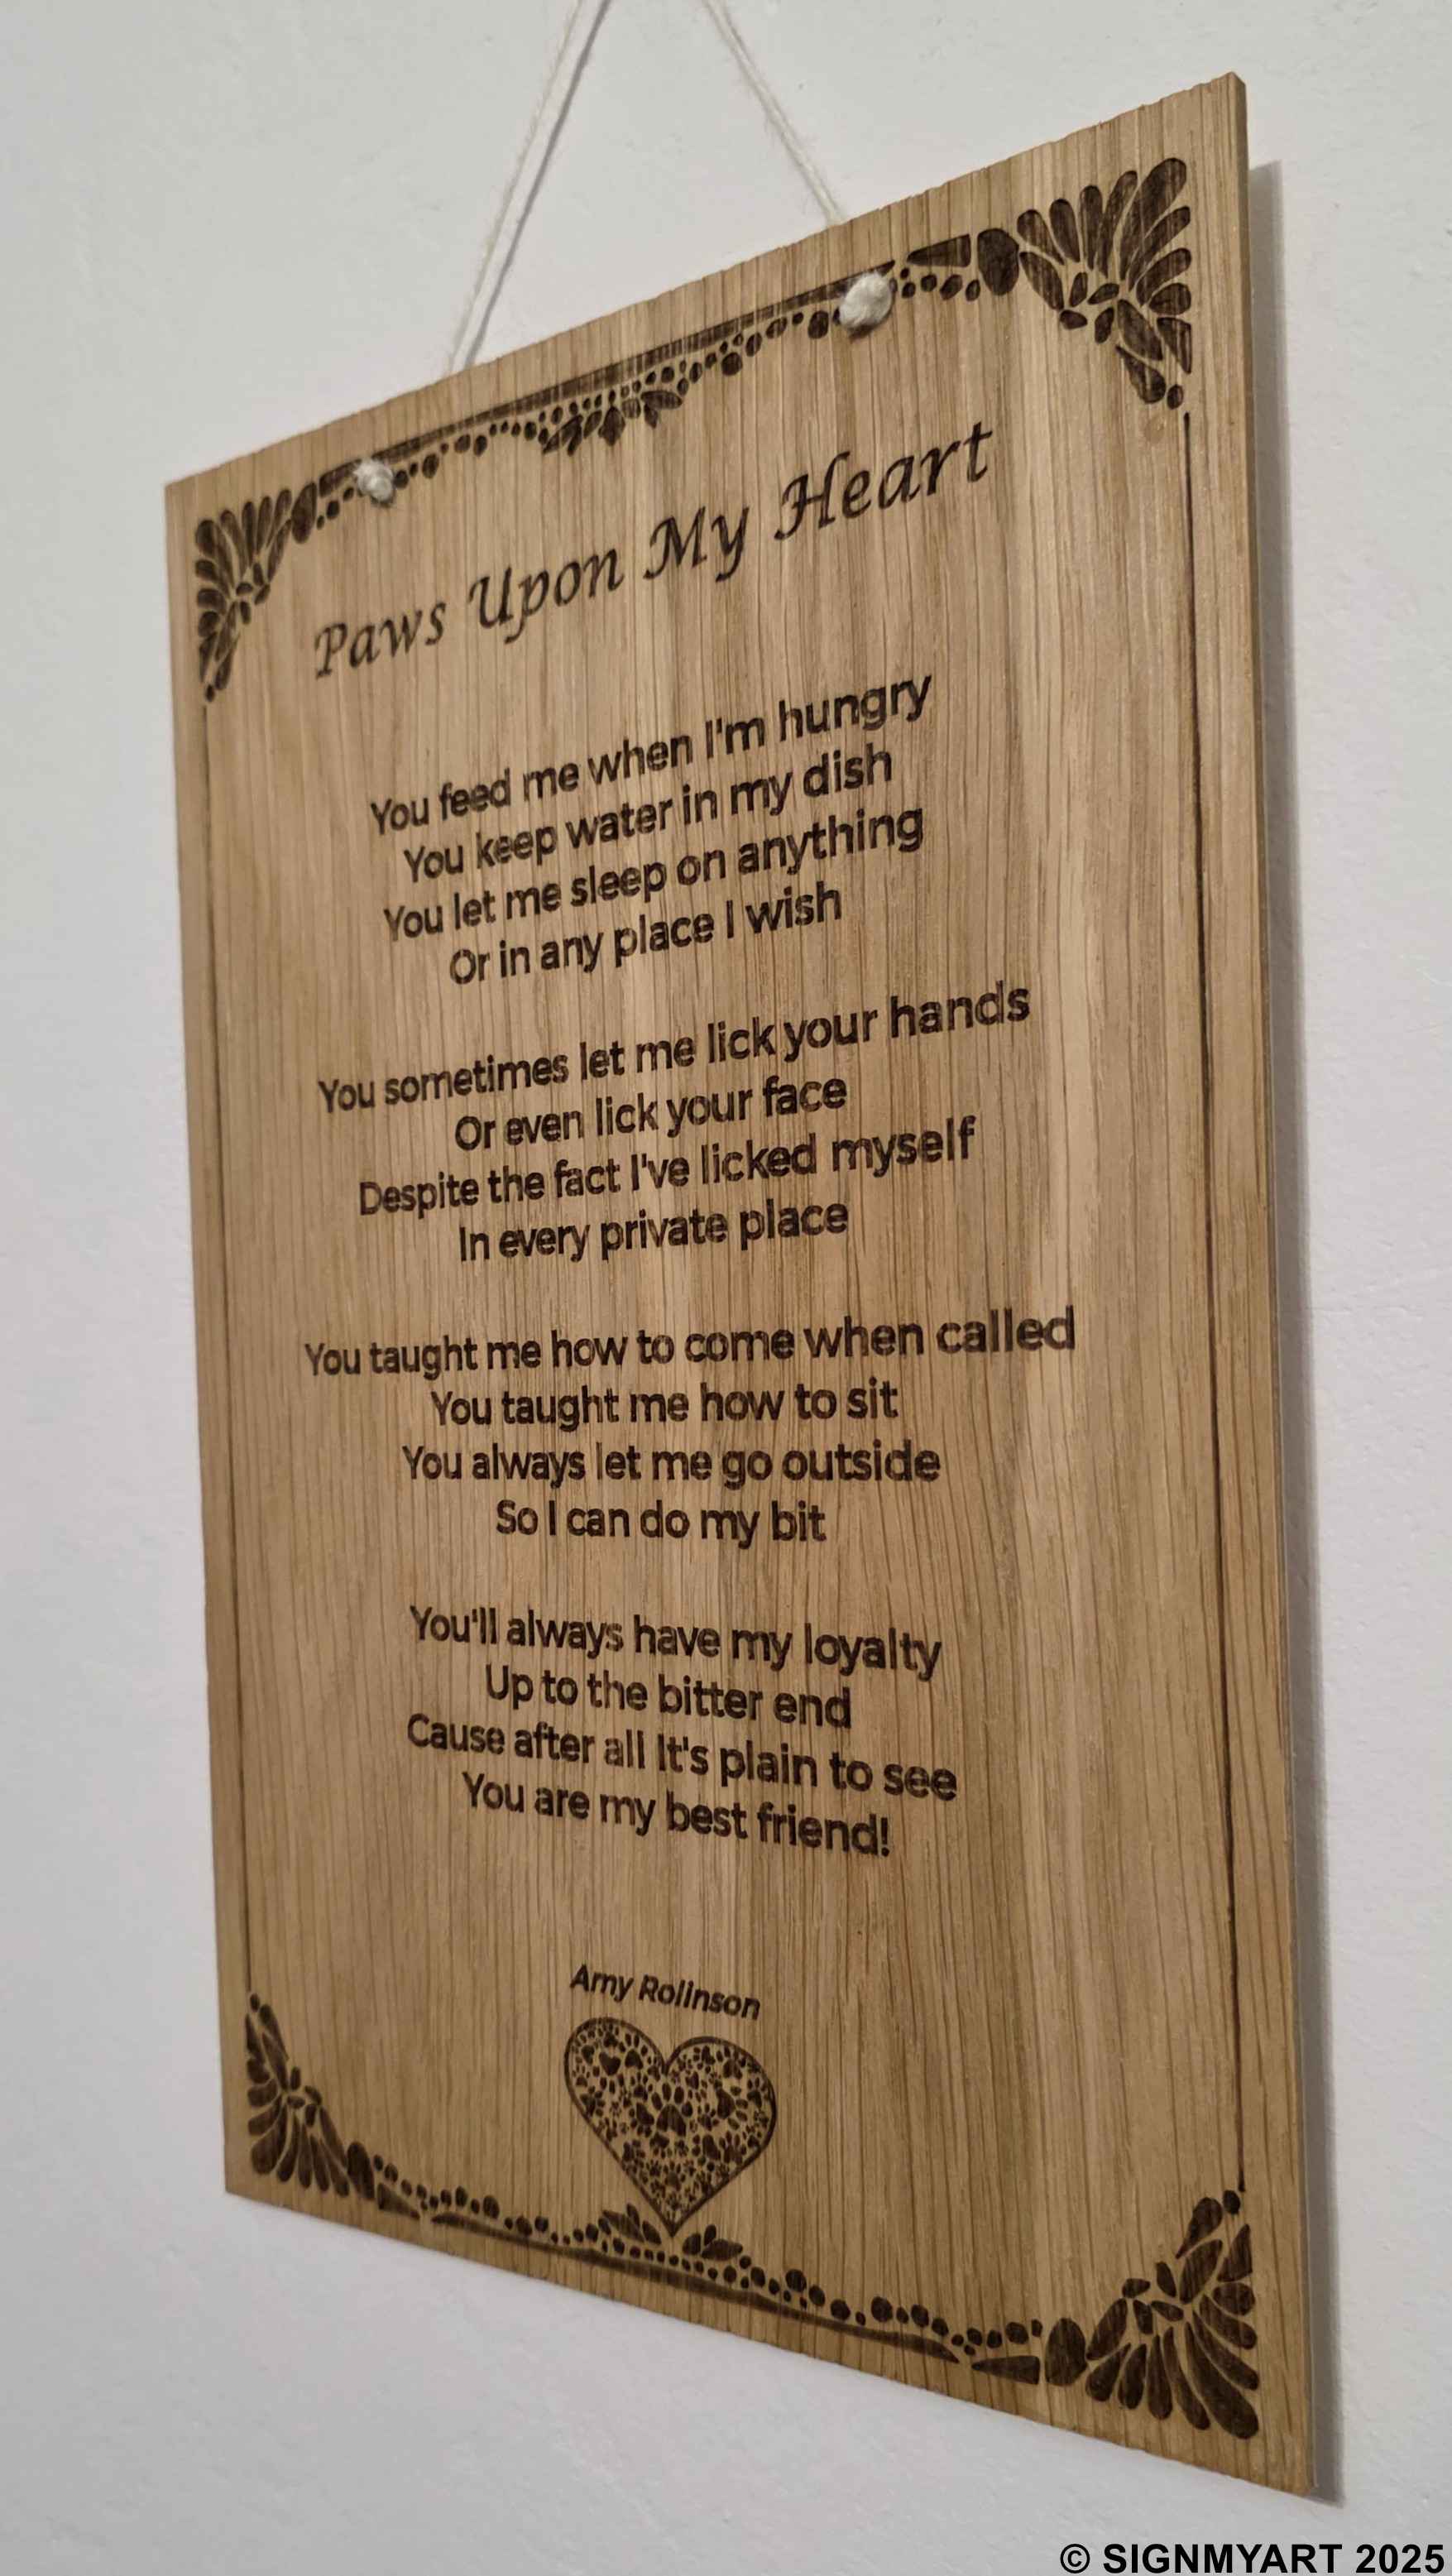 Paws Upon My Heart
You feed me when I'm hungry
You keep water in my dish
You let me sleep on anything
Or in any place I wish
You sometimes let me lick your hands
Or even lick your face
Despite the fact I've licked myself
In every private place
You taught me how to come when called
You taught me how to sit
You always let me go outside
So I can do my bit
You'll always have my loyalty
Up to the bitter end
Cause after all It's plain to see
You are my best friend!
Amy Rolinson
© SIGNMYART 2025